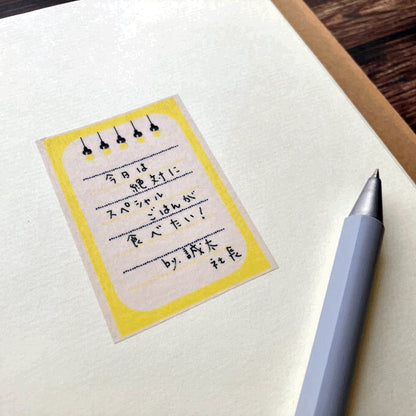 今日は
絶対に
スペシャル
ごはんが
食べたい!
by.誠太
社長